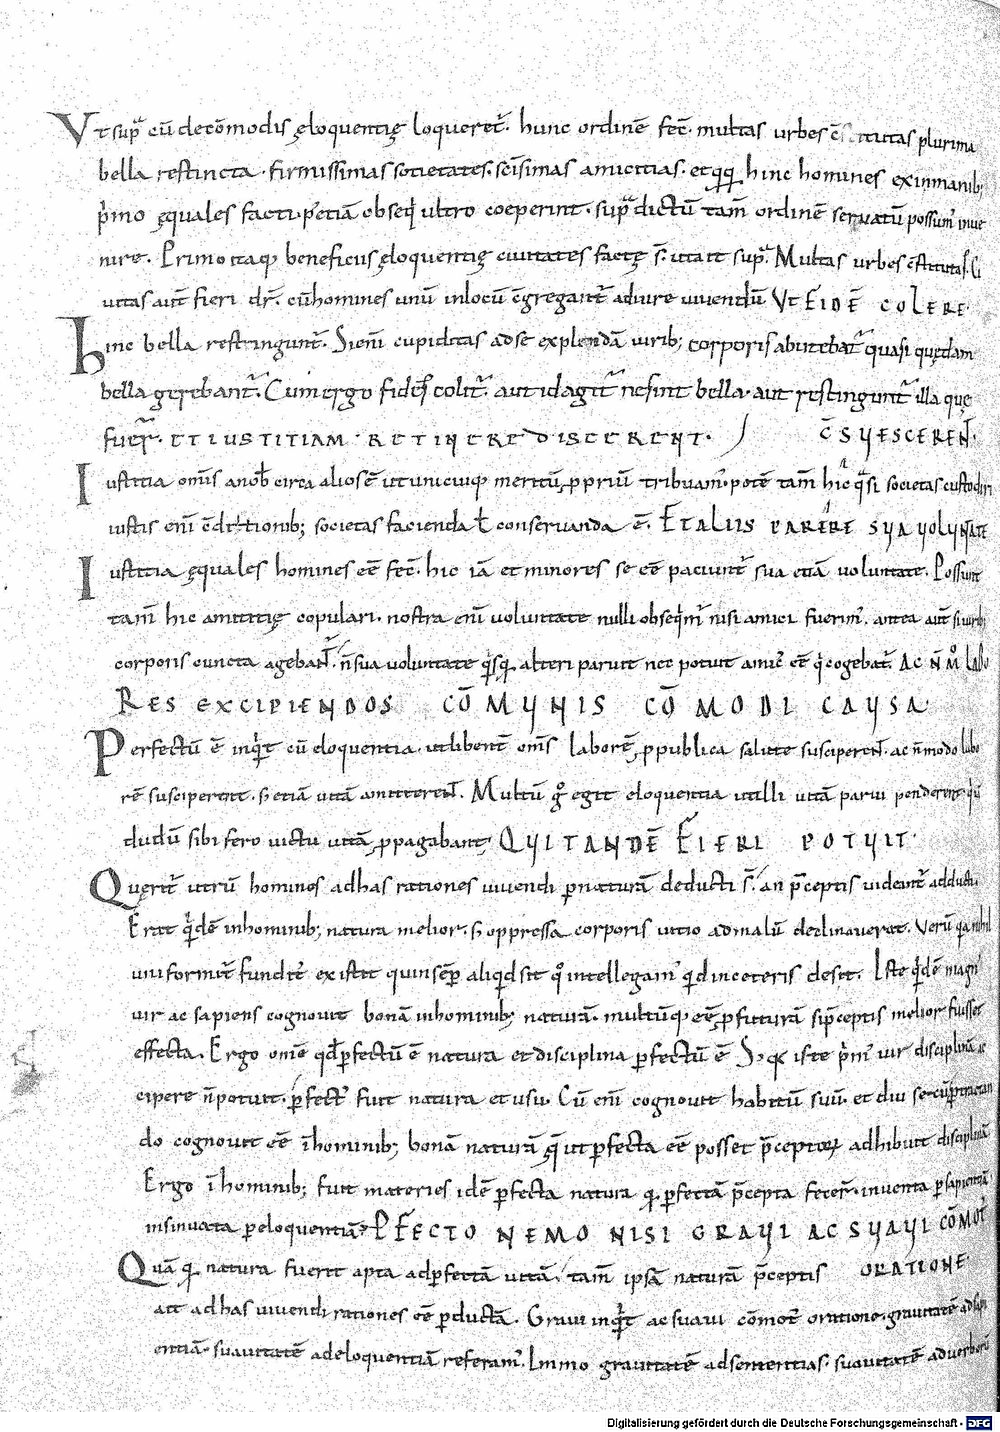 Vt sup̄ cū de cōmodis ęloquentię loqueret̄. hunc ordinē fec̄. multas urbes plurima
bella restincta. firmissimas societates. scīsimas amicitias. et qq hinc homines ex inmanib;
p̄mo ęquales facti. p̄ etiā obseq̄ ultro coeperint. sup̄dictū tam̄ ordinē seruatū possum̄ inue
nire. Primo itaq; beneficiis ęloquentię ciuitates factę s̄. ut ait sup̄. Multas urbes c̄stitutas. Ci
uitas aut̄ fieri dr̄. cū homines unū in locū c̄gregant̄ ad iure uiuendū VT FIDĒ COLERE
hinc bella restringunt̄. Si eni cupiditas ad se explendā uirib; corporis abutebat̄ quasi quędam
bella gerebant̄. Cum ergo fides colit̄. aut id agit̄ ne sint bella. aut restingunt̄ illa quę
fuer̄. ET IUSTITIAM RETINERE DISCERENT. C̄SVESCEREN̄T.
Iustitia om̄s circa alios ē ut unicuiq; meritū, ppriū tribuam̄. potē tam̄ hic q̄si societas custodiri
iustis eni c̄ditionib; societas facienda ł conseruanda ē. ET ALIIS PARERE SVA VOLVNTATE
Iustitia ęquales homines eē fec̄. hic iā et minores se eē paciunt̄ sua etiā uoluntate. Possunt
tam̄ hic amicitię copulari. nostra eni uoluntate nulli obseq̄m̄ nisi amici fuerim̄. antea aut̄ si uirib;
corporis cuncta ageban̄t. n̄ sua uoluntate q̄sq; alteri paruit nec potuit amic̄ eē q̄ cogebat̄. AC N̄ M̊ LABO
RES EXCIPIENDOS CŌMVNIS CŌMODI CAVSA.
Perfectū ē inq̄t cū eloquentia. ut libent̄ om̄s laborē, p publica salute susciperen̄t. ac n̄ modo labo
rē susciperent. s; etiā uitā amitteren̄t. Multū g̊ egit eloquentia ut illi uitā parui penderent qui
dudū sibi fero uictu uitā, ppagabant. QVI TANDĒ FIERI POTVIT.
Querit̄ utrū homines ad has rationes uiuendi p naturā deducti s̄. an p̄ceptis uideant̄ adducti.
Erat q̄dē in hominib; natura melior. s; oppressa corporis uitio ad malū declinauerat. Verū quia nihil
uniformit̄ fundit̄ existit quin semp̄ aliq̄d sit q̊ intellegam̄ q̄d in ceteris desit. Iste q̄dē magn̄
uir ac sapiens cognouit bonā in hominib; naturā. multūq; eē, pfuturā si p̄ceptis melior fuisset
effecta. Ergo om̄e qd̄ p̄fectū ē natura et disciplina p̄fectū ē iste p̄m̄ uir disciplinā ac
cipere n̄ potuit. p̄fect̄ fuit natura et usu. Cū eni cognouit habitū suū. et diu secū p̄tractan
do cognouit eē ī hominib; bonā naturā q̄ ut p̄fecta eē posset p̄ceptor adhibuit disciplinā
Ergo ī hominib; fuit materies idē p̄fecta natura q̄ p̄fectā p̄cepta fecer̄. inuenta p̄ sapientiā
insinuata p̄ eloquentiā. P̄FECTO NEMO NISI GRAVI AC SVAVI CŌMOT̄
Quā q̄ natura fuerit apta ad p̄fectā uitā, tam̄ ipsā naturā p̄ceptis ORATIONE
ait ad has uiuendi rationes eē p̄ductā. Graui inq̄t ac suaui cōmot̄ oratione. grauitatē ad sapi
entiā. suauitatē ad eloquentiā referam̄. Immo grauitatē ad sententias. suauitatē ad uerborū
Digitalisierung gefördert durch die Deutsche Forschungsgemeinschaft - DFG